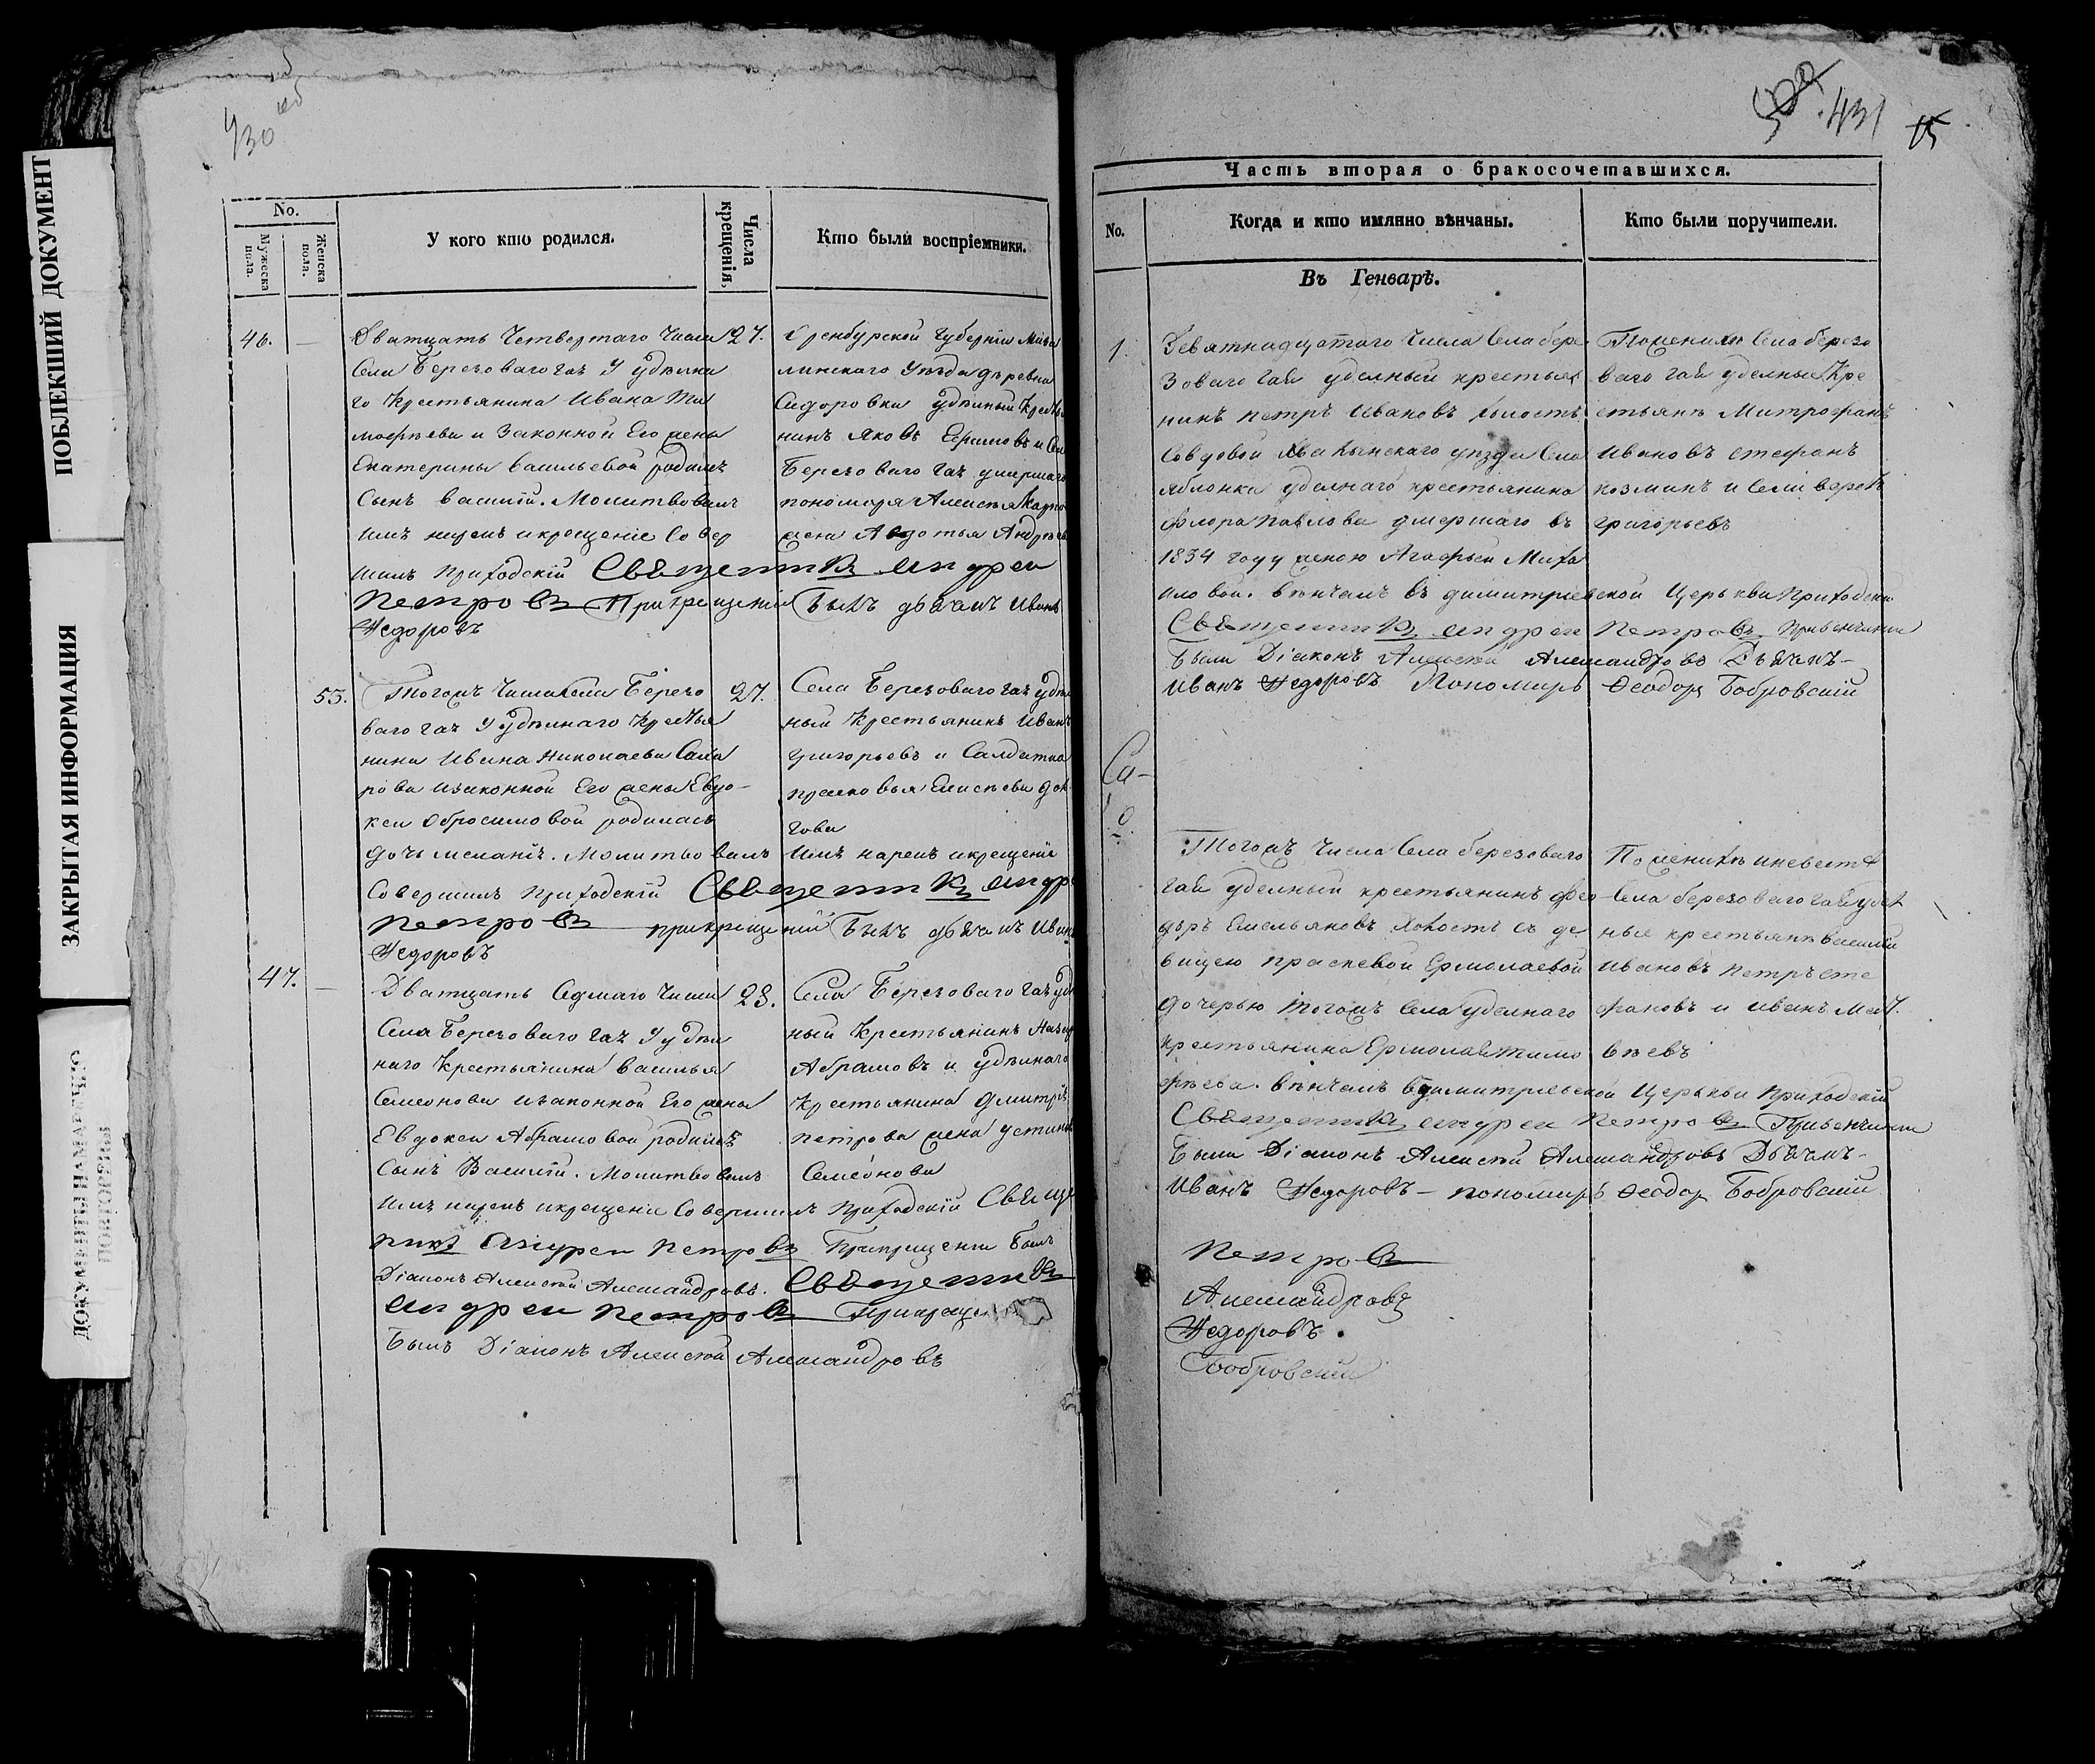 ПОБЛЕКШИЙ ДОКУМЕНТ
ЗАКРЫТАЯ ИНФОРМАЦИЯ
430 об
No.
Мужеска пола.
Женска пола.
У кого кто родился.
Числа крещенія.
Кто были воспріемники.
46.
Дватцать Четвертаго Числа 27.
Села Березоваго гая У удѣлна
го Крестьянина Ивана Ти
мофѣева и Законной Его жены
Екатерины Васильевой родилъ
Сынъ Василій. Молитвовалъ
имъ нарекъ икрещеніе Совер
шилъ Приходскій Священникъ Андреи
Петровъ При крещеніи Былъ дьячекъ Иванъ
Ѳедоровъ
Оренбурской Губерніи
линскаго Уѣзда деревни
Сидоровки удѣлный Крестья
нинъ Яковъ Ефимовъ и Села
Березоваго гая умершаго
пономаря Алексѣя
жена Авдотья Андрѣева
53.
Тогожъ Числа Села Березо 27.
ваго гая У удѣлнаго Крестья
нина Ивана Николаева Сала
рова изаконной Его жены Евдо-
кеи Обросимовой родилась
дочь меланія. Молитвовалъ имъ нарекъ икрещеніе
Совершилъ Приходскій Священникъ Андр
Петровъ прикрещеніи Былъ дьячекъ Иван
Ѳедоровъ
Села Березоваго гая удѣл
ный Крестьянинъ Иванъ
григорьевъ и Салдатка
прасковья Елисѣева
47.
Дватцать Седмаго Числа 28.
Села Березоваго гая У удѣл
наго Крестьянина Василья
Семенова изаконной Его жены
Евдокеи Абрамовой родилъ
Сынъ Василій. Молитвовалъ
имъ нарекъ икрещеніе Совершилъ Приходскій Свяще
никъ Андреи Петровъ Прикрещеніи Былъ
Діаконъ Алексѣй Александровъ. Священникъ
Андреи Петровъ Прикрещеніи
Былъ Діаконъ Алексѣй Александровъ
Села Березоваго гая уд
ный Крестьянинъ
Абрамовъ и удѣлнаго
Крестьянина Дмитрія
петрова жена устинья
Семенова
431
15
Часть вторая о бракосочетавшихся.
No.
Когда и кто имянно вѣнчаны.
Кто были поручители.
Въ Генварѣ.
1.
Девятнадцатаго Числа Села бере
зоваго гая уделный крестья
нинъ петръ Ивановъ холостъ
Совдовой Хвалынскаго уезда Села
яблонки уделнаго крестьянина
флора павлова умершаго въ
1834 году женою Агафьей Миха
иловой. вѣнчалъ въ димитриевской Церькви Приходски
Священникъ Андреи Петровъ Привенчании
Были Діаконъ Алексѣй Александровъ Дьячекъ-
Иванъ Ѳедоровъ Пономарь Ѳеодоръ Бобровскій
Поженихи Села березо
ваго гая уделные Кре
стьянъ Митрофанъ
Ивановъ стефанъ
козминъ и
григорьевъ
Тогожъ Числа Села березоваго
гая уделный крестьянинъ фео
доръ Емельяновъ Холостъ съ де
вицею прасковьей Ермолаевой
дочерью тогожъ Села уделнаго
крестьянина Ермолая Тимо
фѣева. вѣнчалъ вдимитриевской Церькви Приходскій
Священникъ Андреи Петровъ Привенчании
Были Діаконъ Алексѣй Александровъ Дьячекъ-
Иванъ Ѳедоровъ - пономарь Ѳеодоръ Бобровскій
Поженихѣ иневестѣ
Села березоваго гая удел
ные крестьянѣ василій
Ивановъ Петръ сте
фановъ и иванъ Мат
вѣевъ
Петровъ
Александровъ
Ѳедоровъ.
Бобровскій